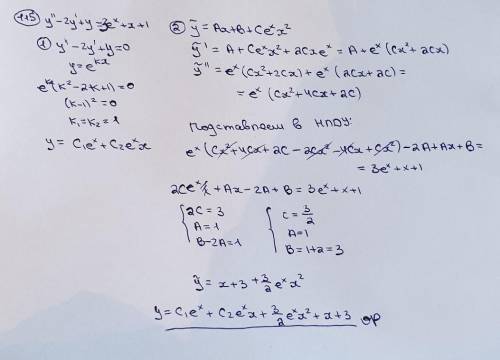 115 y'' - 2y' + y = 3eˣ + x + 1
① y' - 2y' + y = 0
y = eᵏˣ
eᵏ(k² - 2k + 1) = 0
(k-1)² = 0
k₁ = k₂ = 1
y = C₁eˣ + C₂eˣx
② ỹ = Ax + B + Ceˣx²
ỹ' = A + Ceˣx² + 2Cxeˣ = A + eˣ(Cx² + 2Cx)
ỹ'' = eˣ(Cx² + 2Cx) + eˣ(2Cx + 2C) =
= eˣ(Cx² + 4Cx + 2C)
Подставляем в НЛДУ:
eˣ(Cx² + 4Cx + 2C - 2Cx² - 4Cx + Cx²) - 2A + Ax + B =
= 3eˣ + x + 1
2Ceˣ + Ax - 2A + B = 3eˣ + x + 1
{ 2C = 3 { C = 3/2
A = 1 A = 1
B - 2A = 1 B = 1 + 2 = 3
ỹ = x + 3 + 3/2 eˣx²
y = C₁eˣ + C₂eˣx + 3/2 eˣx² + x + 3 ор